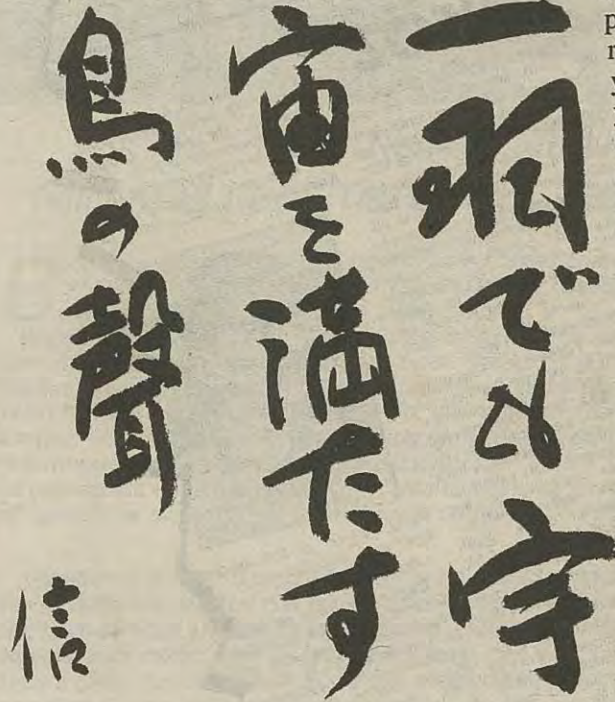 一羽でも宇
宙を満たす
鳥の聲
信
p
r
y